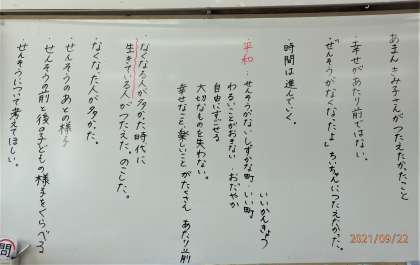 あまんきみ子さんがつたえたかったこと
・幸せがあたり前ではない。
・「せんそうがなくなったよ」ちいちゃんにつたえたかった。
・時間は進んでいく。
・平和…せんそうがない しずかな町・いい町
いいかんきょう
わるいことがおきない おだやか
自由にすごせる
大切なものを失わない。
幸せなこと、楽しいこと がたくさん あたり前
・なくなる人が多かった時代に
生きている人がつたえた。のこした。
・なくなった人が多かった。
・せんそうのあとの様子
・せんそうの前と後の子どもの様子をくらべる
・せんそうについて考えてほしい。
問
2021/09/22